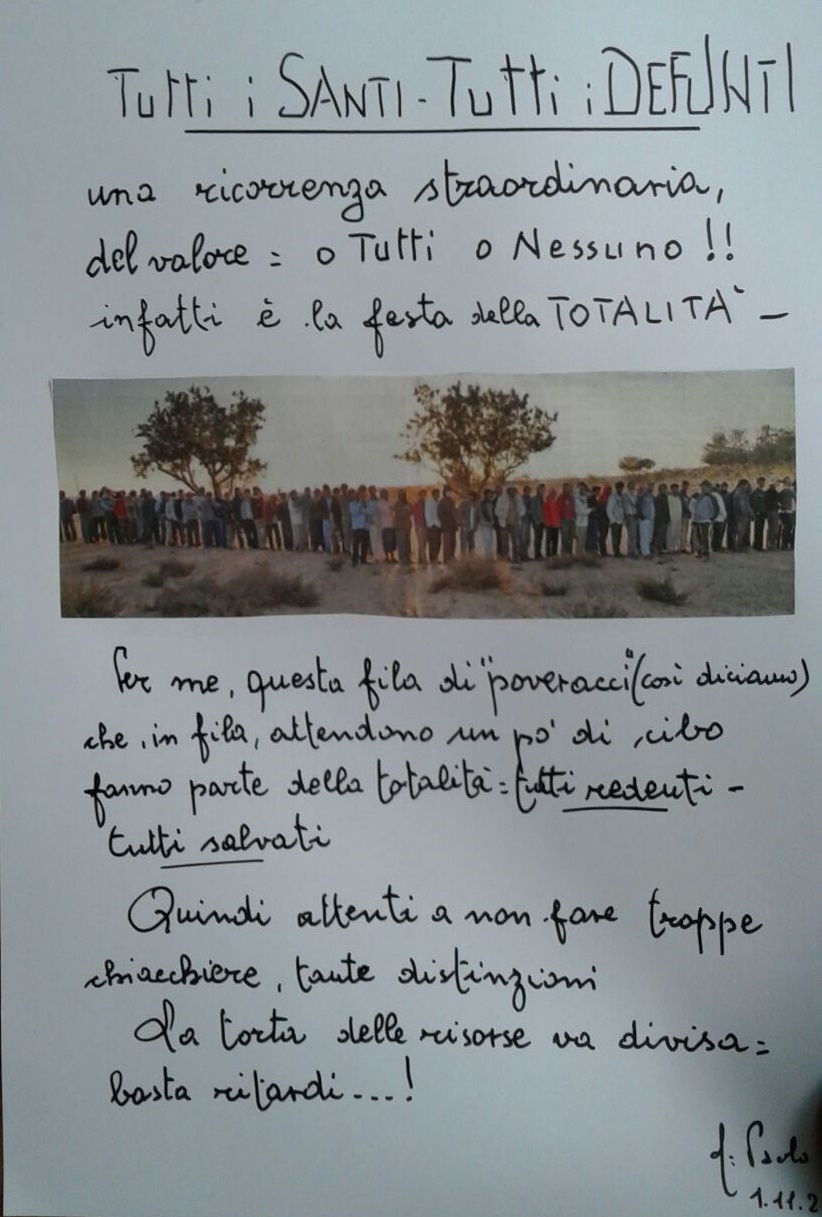 Tutti i SANTI - Tutti i DEFUNTI
una ricorrenza straordinaria,
del valore = o Tutti o Nessuno !!
infatti è la festa della TOTALITÀ -
Per me, questa fila di "poveracci" (così diciamo)
che, in fila, attendono un pò di cibo
fanno parte della totalità = tutti redenti -
tutti salvati
Quindi attenti a non fare troppe
chiacchiere, tante distinzioni
La torta delle risorse va divisa =
basta ritardi...!
d: Paolo
1.11.2